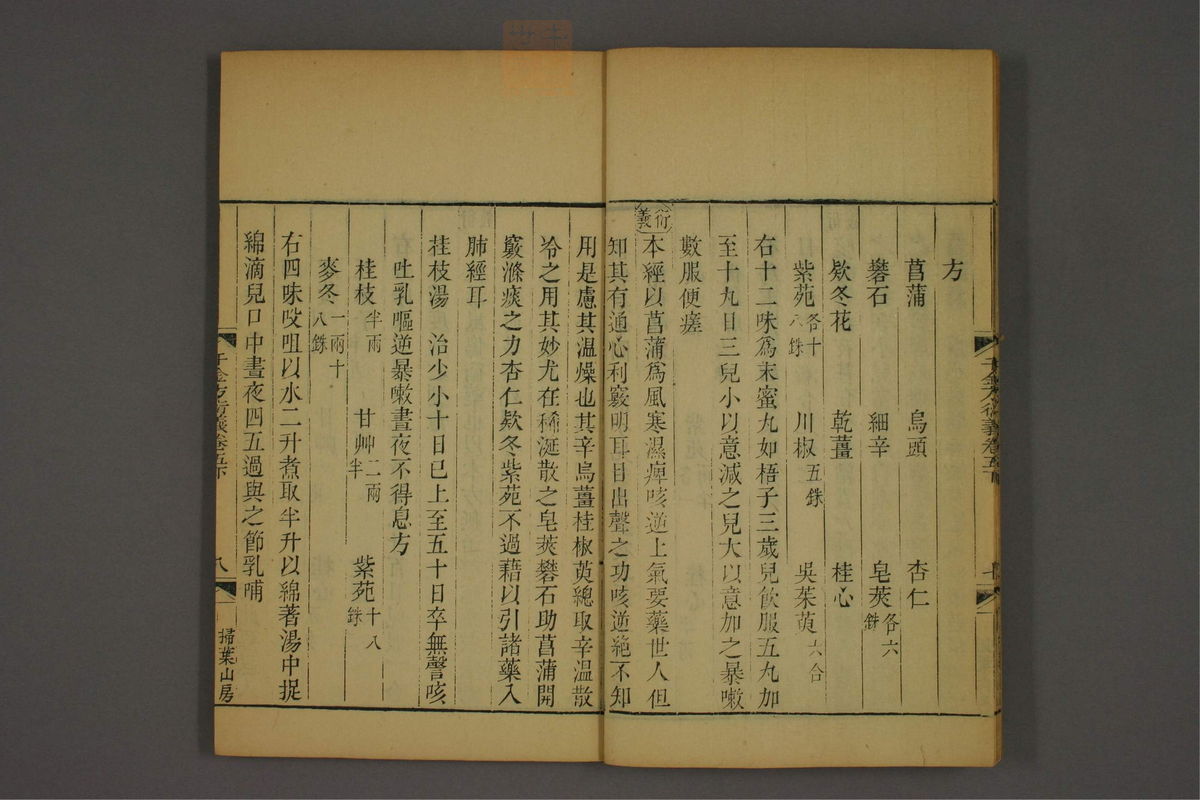 方
菖蒲 烏頭 杏仁
礬石 細辛 皂莢各六銖
欵冬花 乾薑 桂心
紫苑各十八銖 川椒五銖 吳茱萸六合
右十二味爲末蜜丸如梧子三歲兒飲服五丸加
至十丸日三兒小以意減之兒大以意加之暴嗽
數服便瘥
衍義
本經以菖蒲爲風寒濕痺咳逆上氣要藥世人但
知其有通心利竅明耳目出聲之功咳逆絶不知
用是慮其溫燥也其辛烏薑桂椒萸總取辛溫散
冷之用其妙尤在稀涎散之皂莢礬石助菖蒲開
竅滌痰之力杏仁欵冬紫苑不過藉以引諸藥入
肺經耳
桂枝湯 治少小十日已上至五十日卒無聲咳
吐乳嘔逆暴嗽晝夜不得息方
桂枝半兩 甘艸二兩半 紫苑十八銖
麥冬一兩十八銖
右四味㕮咀以水二升煮取半升以綿著湯中捉
綿滴兒口中晝夜四五過與之節乳哺
千金方衍義卷五下
八
掃葉山房